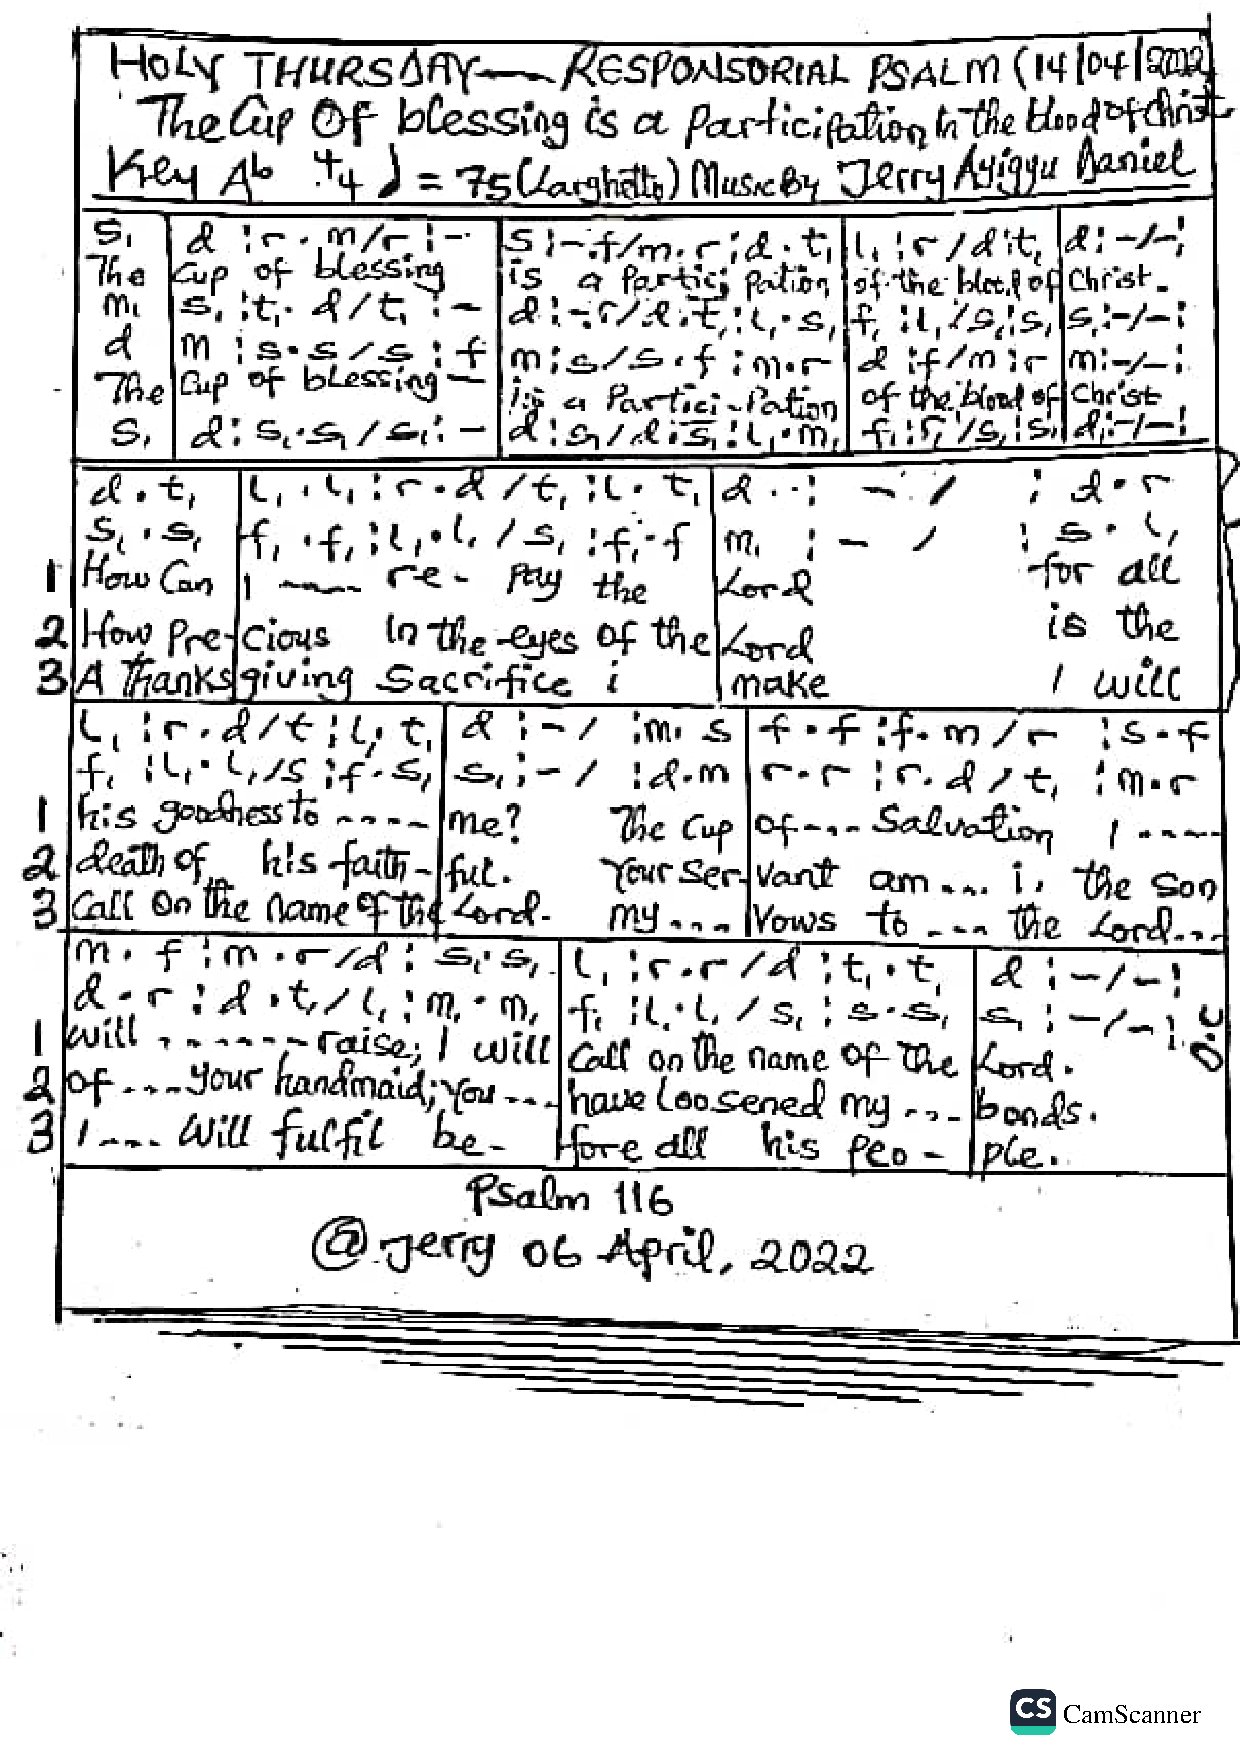 HOLY THURSDAY — RESPONSORIAL PSALM (14/04/2022)
The Cup Of blessing is a participation In the blood of Christ
Key Ab 4/4 ♩ = 75 (Larghetto) Music By Jerry Ayigyu Daniel
s, | d :r . m/r :- | s :-.f/m.r :d . t, | l, :r / d:t, | d :-/-:
The | Cup of blessing | is a Partici pation | of the blood of | Christ.
m, | s, :t, . d/t, :- | d :-.r/d.t, :l, . s, | f, :l, /s, :s, | s, :-/-:
d | m :s.s/s :f | m :s/s.f :m.r | d :f/m :r | m :-/-:
The | Cup of blessing — | is a Partici-Pation | of the blood of | Christ
s, | d : s, . s, / s, : - | d :s, /d :s, :l, . m, | f, :r, /s, :s, | d, :-/-:
d . t, | l, . l, :r . d / t, :l, . t, | d . . : - / : d . r
s, . s, | f, . f, :l, . l, / s, :f, . f | m, : - / : s . l,
1 How Can | I ---- re- pay the | Lord for all
2 How Pre- | cious In the eyes of the | Lord is the
3 A Thanks | giving Sacrifice i | make I will
l, :r . d/t :l, . t, | d :-/ :m . s | f . f :f . m / r :s . f
f, :l, . l, /s :f . s, | s, :-/ :d.m | r . r :r . d / t, :m . r
1 his goodness to ---- | me? The Cup | of --- Salvation I ----
2 death of his faith- | ful. Your Ser- | vant am --- i, the son
3 Call On the name of the | Lord. my --- | Vows to --- the Lord---
m . f :m . r/d : s, . s, | l, :r . r / d :t, . t, | d :-/-:
d . r :d . t, / l, :m, . m, | f, :l, . l, / s, :s . s, | s, :-/-: D.C
1 Will ------- raise; I will | Call on the name of the | Lord.
2 of --- your handmaid; you --- | have loosened my --- | bonds.
3 I --- Will fulfil be- | fore all his peo- | ple.
Psalm 116
@Jerry 06 April, 2022
CS CamScanner